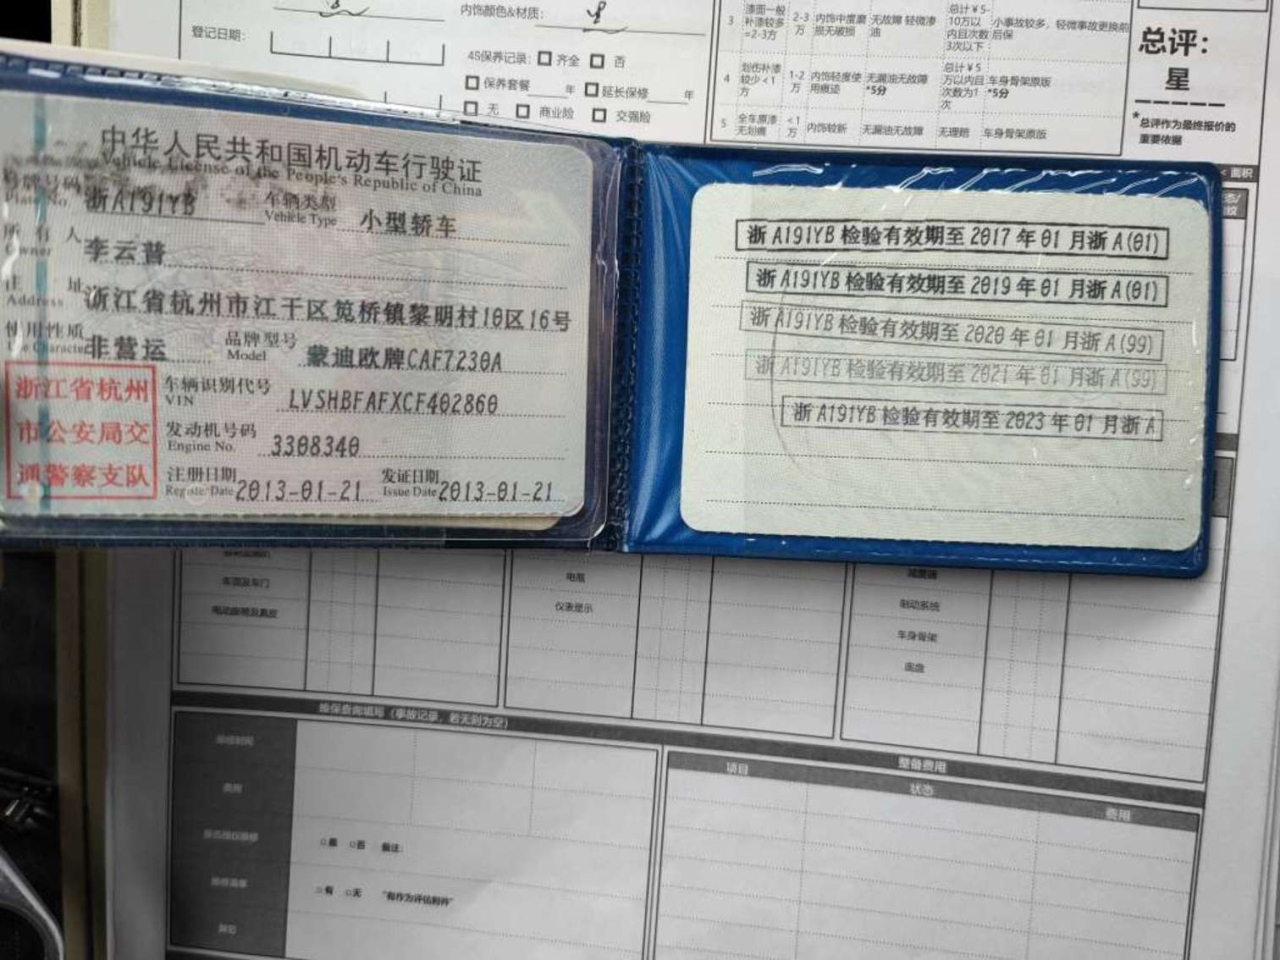 内饰颜色&材质:
登记日期:
4S保养记录: 齐全 否
保养套餐 年 延长保修 年
无 商业险 交强险
3 漆面一般补漆较多=2-3方 2-3万 内饰中度磨损无破损 无故障 轻微渗油 总计¥5-10万以内且次数3次以下 小事故较多，轻微事故更换前后保
4 划伤补漆较少<1方 1-2万 内饰轻度使用痕迹 无漏油无故障*5分 总计¥5万以内且次数为1次 车身骨架原版*5分
5 全车原漆无划痕 <1万 内饰较新 无漏油无故障 无理赔 车身骨架原版
总评:
星
*总评作为最终报价的重要依据
中华人民共和国机动车行驶证
Vehicle License of the People's Republic of China
号牌号码 浙A191YB 车辆类型 小型轿车
Plate No. Vehicle Type
所有人 李云普
Owner
住址 浙江省杭州市江干区笕桥镇黎明村10区16号
Address
使用性质 非营运 品牌型号 蒙迪欧牌CAF7230A
Use Character Model
浙江省杭州
市公安局交
通警察支队
车辆识别代号 LVSHBFAFXCF402860
VIN
发动机号码 3308340
Engine No.
注册日期 2013-01-21 发证日期 2013-01-21
Register Date Issue Date
浙A191YB检验有效期至2017年01月浙A(01)
浙A191YB检验有效期至2019年01月浙A(01)
浙A191YB检验有效期至2020年01月浙A(99)
浙A191YB检验有效期至2021年01月浙A(99)
浙A191YB检验有效期至2023年01月浙A
车窗及车门
电瓶
仪表显示
减震器
制动系统
车身骨架
底盘
维保查询填写（事故记录，若无则为空）
整备费用
项目 状态 费用
是 否 备注:
有 无 "有作为评估附件"
其它